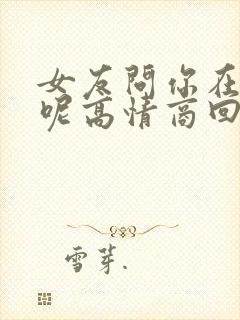 女友問你在
呢高情商回
雪芽.